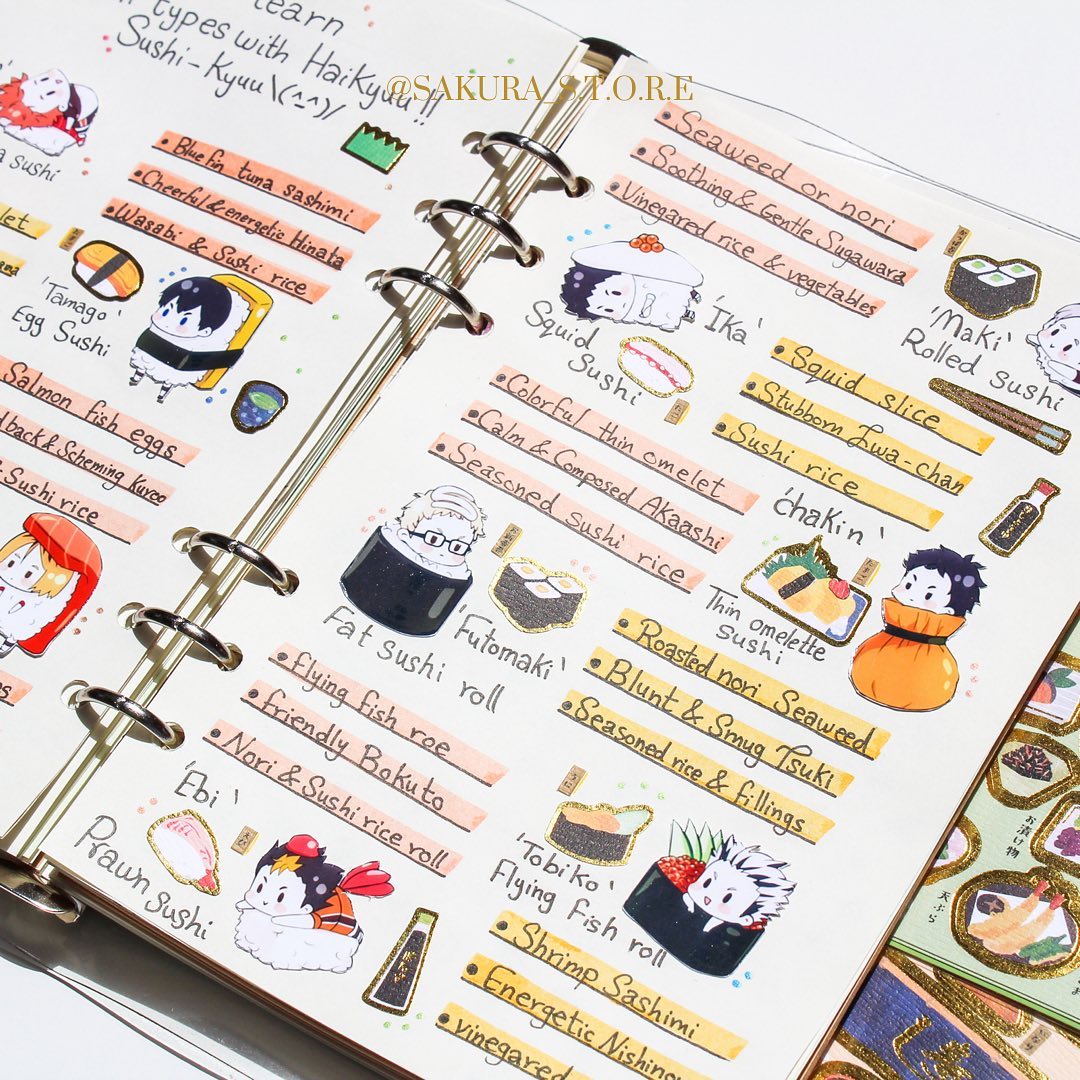 @SAKURA_S.T.O.R.E
learn
types with Haikyuu!!
Sushi-Kyuu \(^-^)/
sushi
• Bluefin tuna sashimi
• Cheerful & energetic Hinata
• Wasabi & Sushi rice
'Tamago'
Egg Sushi
Salmon fish eggs
& Scheming Kuroo
& Sushi rice
• Seaweed or nori
• Soothing & Gentle Sugawara
• Vinegared rice & vegetables
'Ika'
Squid
Sushi
'Maki'
Rolled sushi
• Squid slice
• Stubborn Iwa-chan
• Sushi rice
• Colorful thin omelet
• Calm & Composed Akaashi
• Seasoned sushi rice
'chakin'
Thin omelette
sushi
'Futomaki'
Fat sushi roll
• Roasted nori Seaweed
• Blunt & Smug Tsuki
• Seasoned rice & fillings
• flying fish roe
• Friendly Bokuto
• Nori & Sushi rice roll
'Ebi'
Prawn sushi
'Tobiko'
Flying fish roll
• Shrimp Sashimi
• Energetic
• vinegared
お漬け物
天ぷら